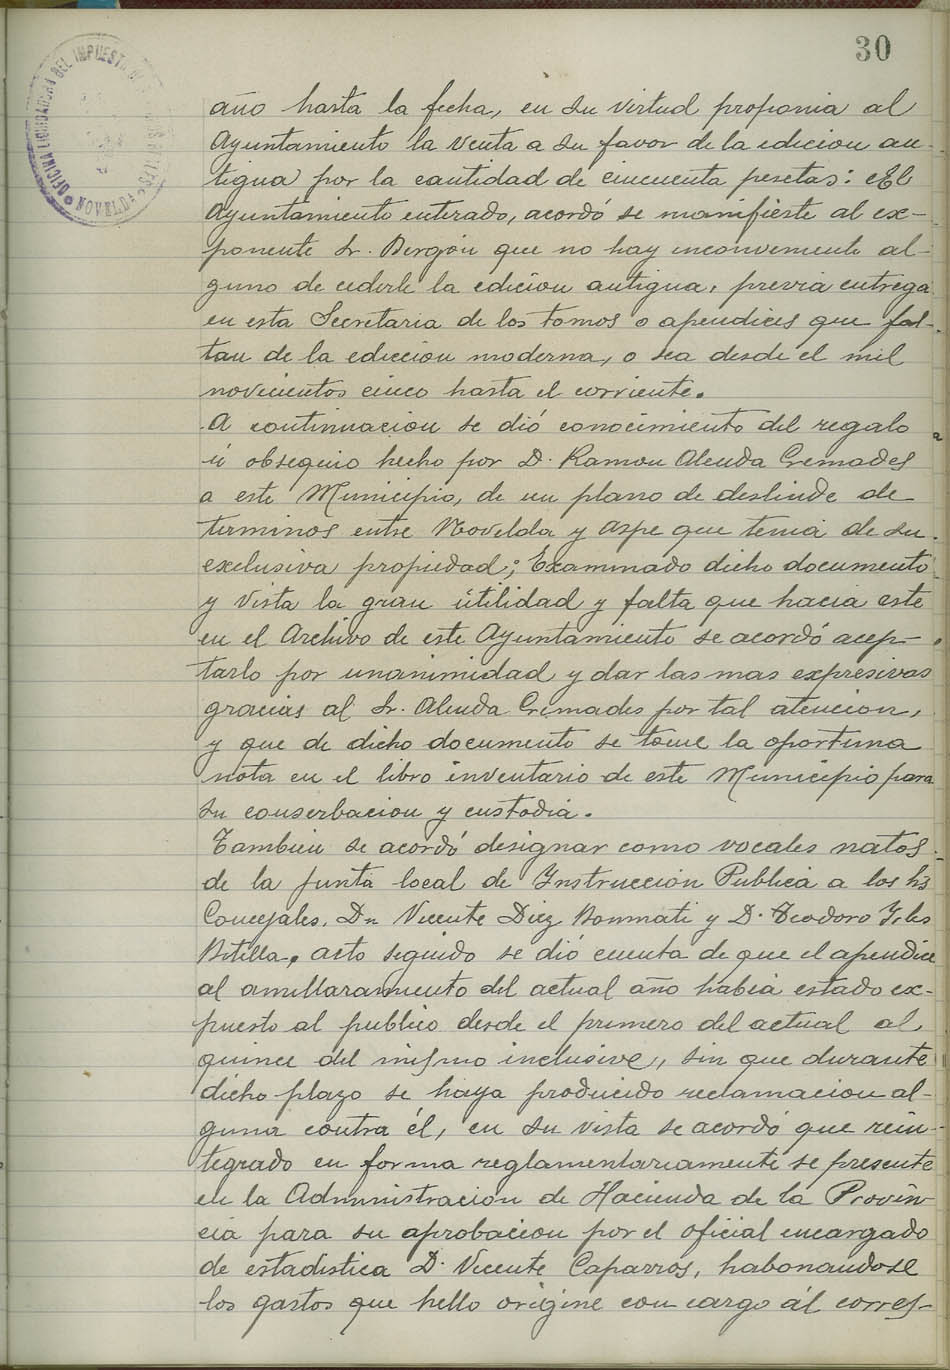 30
OFICINA LIQUIDADORA DEL IMPUESTO DE
NOVELDA
año hasta la fecha, en su virtud proponia al
Ayuntamiento la venta a su favor de la edicion an-
tigua por la cantidad de cincuenta pesetas: El
Ayuntamiento enterado, acordó se manifieste al ex-
ponente Sr. Bergón que no hay inconveniente al-
guno de cederle la edicion antigua, previa entrega
en esta Secretaria de los tomos o apendices que fal-
tan de la ediccion moderna, o sea desde el mil
novecientos cinco hasta el corriente.
A continuacion se dió conocimiento del regalo
ú obsequio hecho por D. Ramon Alenda Cremades
a este Municipio, de un plano de deslinde de
terminos entre Novelda y Aspe que tenia de su
exclusiva propiedad; Examinado dicho documento
y vista la gran útilidad y falta que hacia este
en el Archivo de este Ayuntamiento se acordó acep-
tarlo por unanimidad y dar las mas expresivas
gracias al Sr. Alenda Cremades por tal atencion,
y que de dicho documento se tome la oportuna
nota en el libro inventario de este Municipio para
su conserbacion y custodia.
Tambien se acordó designar como vocales natos
de la Junta local de Instrucción Publica a los
Concejales, Dn Vicente Diez Bonmati y D. Teodoro
Botella, acto seguido se dió cuenta de que el apendice
al amillaramiento del actual año habia estado ex-
puesto al publico desde el primero del actual al
quince del mismo inclusive, sin que durante
dicho plazo se haya producido reclamacion al-
guna contra él, en su vista se acordó que rein-
tegrado en forma reglamentariamente se presente
en la Administracion de Hacienda de la Provin
cia para su aprobacion por el oficial encargado
de estadistica D. Vicente Caparros, habonandose
los gastos que hello origine con cargo ál corres-